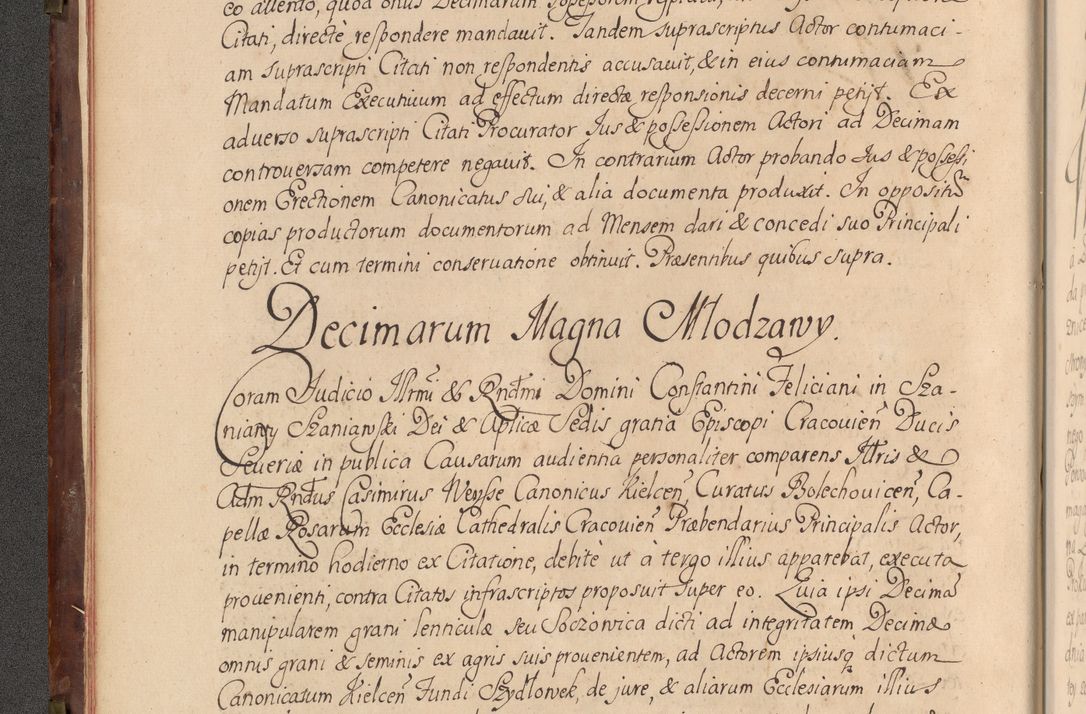 co attento, quod onus Decimarum
Citati, directè respondere mandauit. Tandem suprascriptus Actor contumaci-
am suprascripti Citati non respondentis accusauit, & in eius contumaciam
Mandatum Executiuum ad effectum directæ responsionis decerni petijt. Ex
aduerso suprascripti Citati Procurator Jus & possessionem Actori ad Decimam
controuersam competere negauit. In contrarium Actor probando Jus & possessi
onem Erectionem Canonicatus sui, & alia documenta produxit. In oppositũ
copias productorum documentorum ad Mensem dari & concedi suo Principali
petijt. Et cum termini conseruatione obtinuit. Præsentibus quibus supra.
Decimarum Magna Młodzawy.
Coram Judicio Illrmi & Rndmi Domini Constantini Feliciani in Sza-
niawy Szaniawski Dei & Aplicæ Sedis gratia Episcopi Cracouien̄ Ducis
Seueriæ in publica Causarum audientia personaliter comparens Illris &
Adm Rndus Casimirus Weysse Canonicus Kielcen̄, Curatus Bolechouicen̄, Ca-
pellæ Rosarum Ecclesiæ Cathedralis Cracouien̄ Præbendarius Principalis Actor,
in termino hodierno ex Citatione, debitè ut à tergo illius apparebat, executa
prouenienti, contra Citatos infrascriptos proposuit super eo. Quia ipsi Decimã
manipularem grani lenticulæ seu Soczowica dicti ad integritatem Decimæ
omnis grani & seminis ex agris suis prouenientem, ad Actorem ipsiusq́ dictum
Canonicatum Kielcen̄ Fundi Szydłowek, de jure, & aliarum Ecclesiarum illius